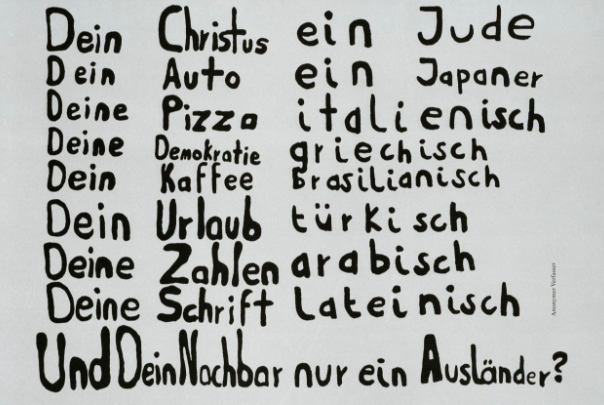 Dein Christus ein Jude
Dein Auto ein Japaner
Deine Pizza italienisch
Deine Demokratie griechisch
Dein Kaffee brasilianisch
Dein Urlaub türkisch
Deine Zahlen arabisch
Deine Schrift Lateinisch
Und Dein Nachbar nur ein Ausländer?
Anonymer Verfasser